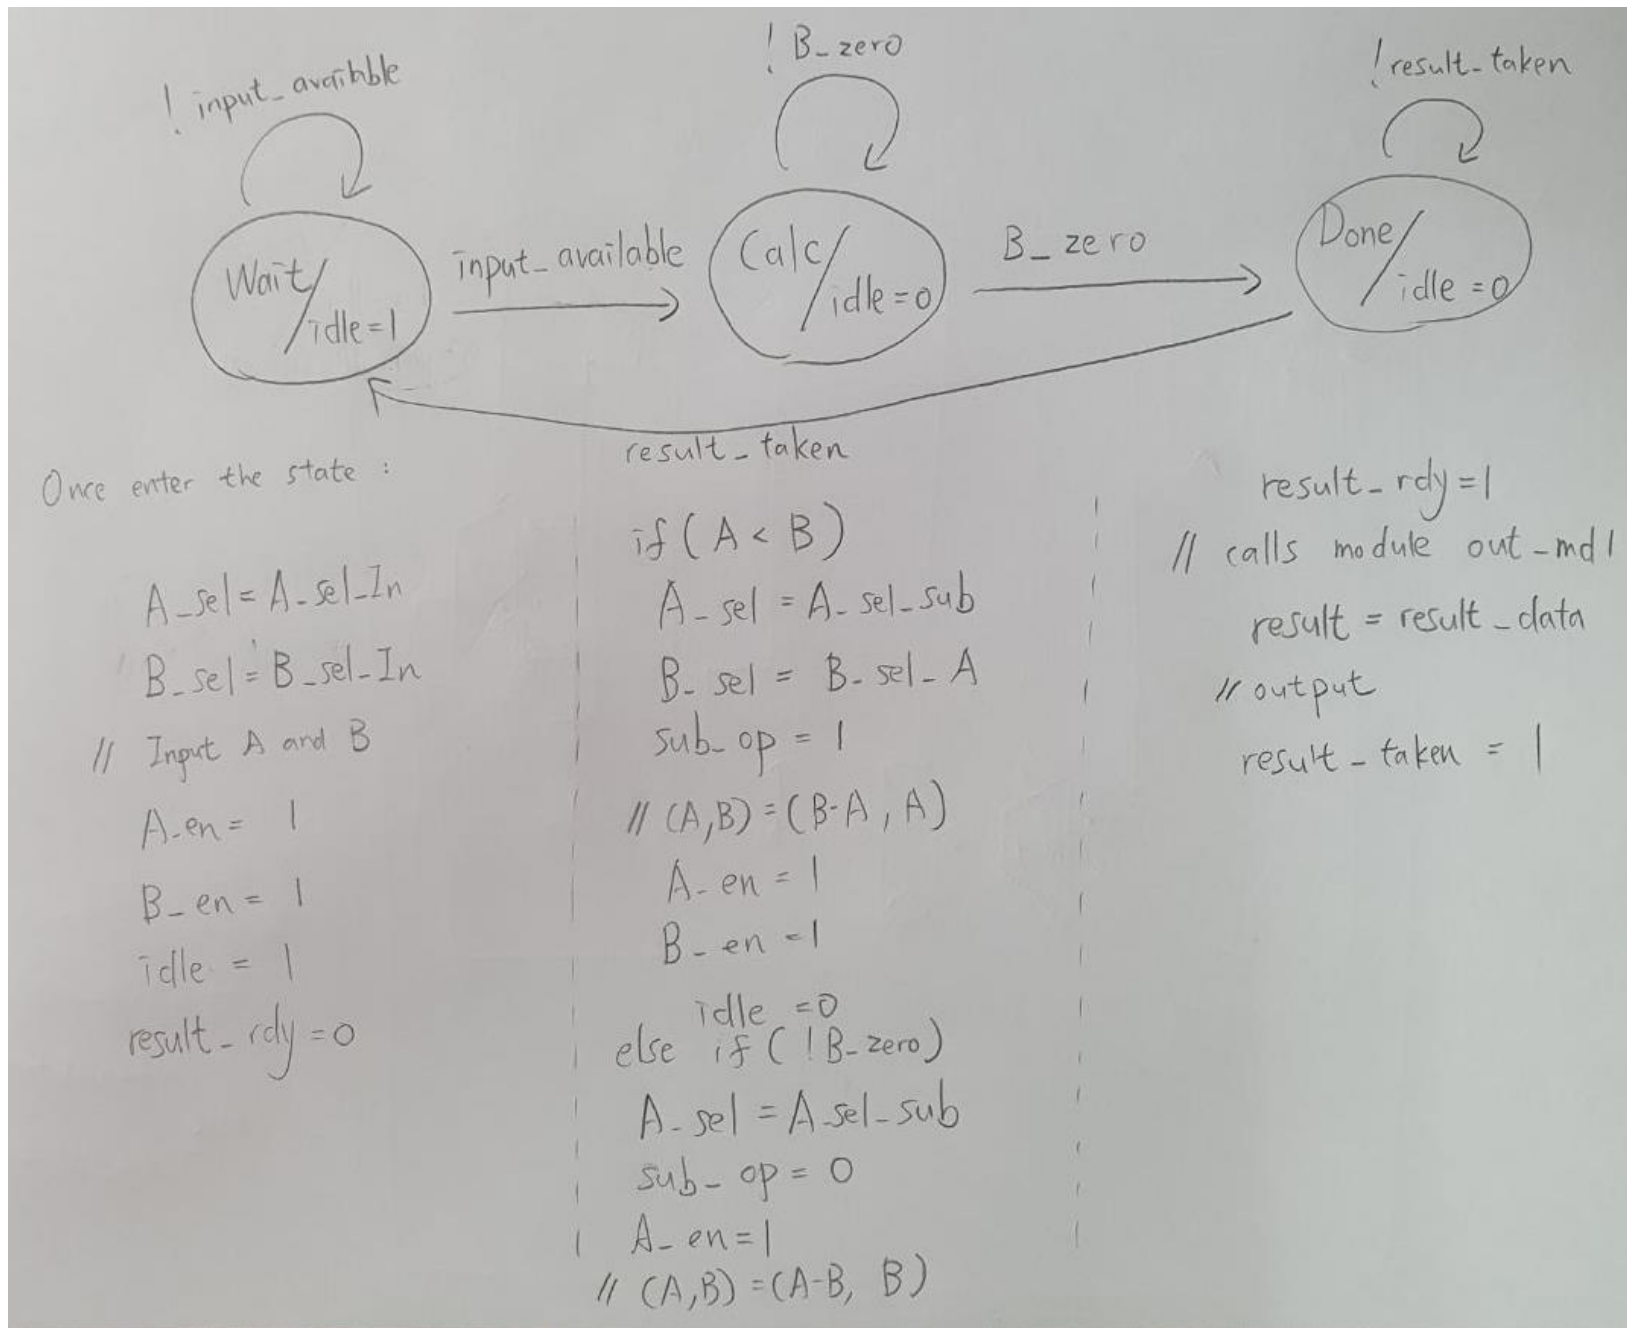 ! input_available
! B_zero
! result_taken
Wait/
idle=1
input_available
Calc/
idle=0
B_zero
Done/
idle=0
result_taken
Once enter the state :
A_sel = A_sel_In
B_sel = B_sel_In
// Input A and B
A_en = 1
B_en = 1
idle = 1
result_rdy = 0
if (A < B)
A_sel = A_sel_sub
B_sel = B_sel_A
sub_op = 1
// (A,B) = (B-A, A)
A_en = 1
B_en = 1
idle = 0
else if ( !B_zero)
A_sel = A_sel_sub
sub_op = 0
A_en = 1
// (A,B) = (A-B, B)
result_rdy = 1
// calls module out_mdl
result = result_data
// output
result_taken = 1